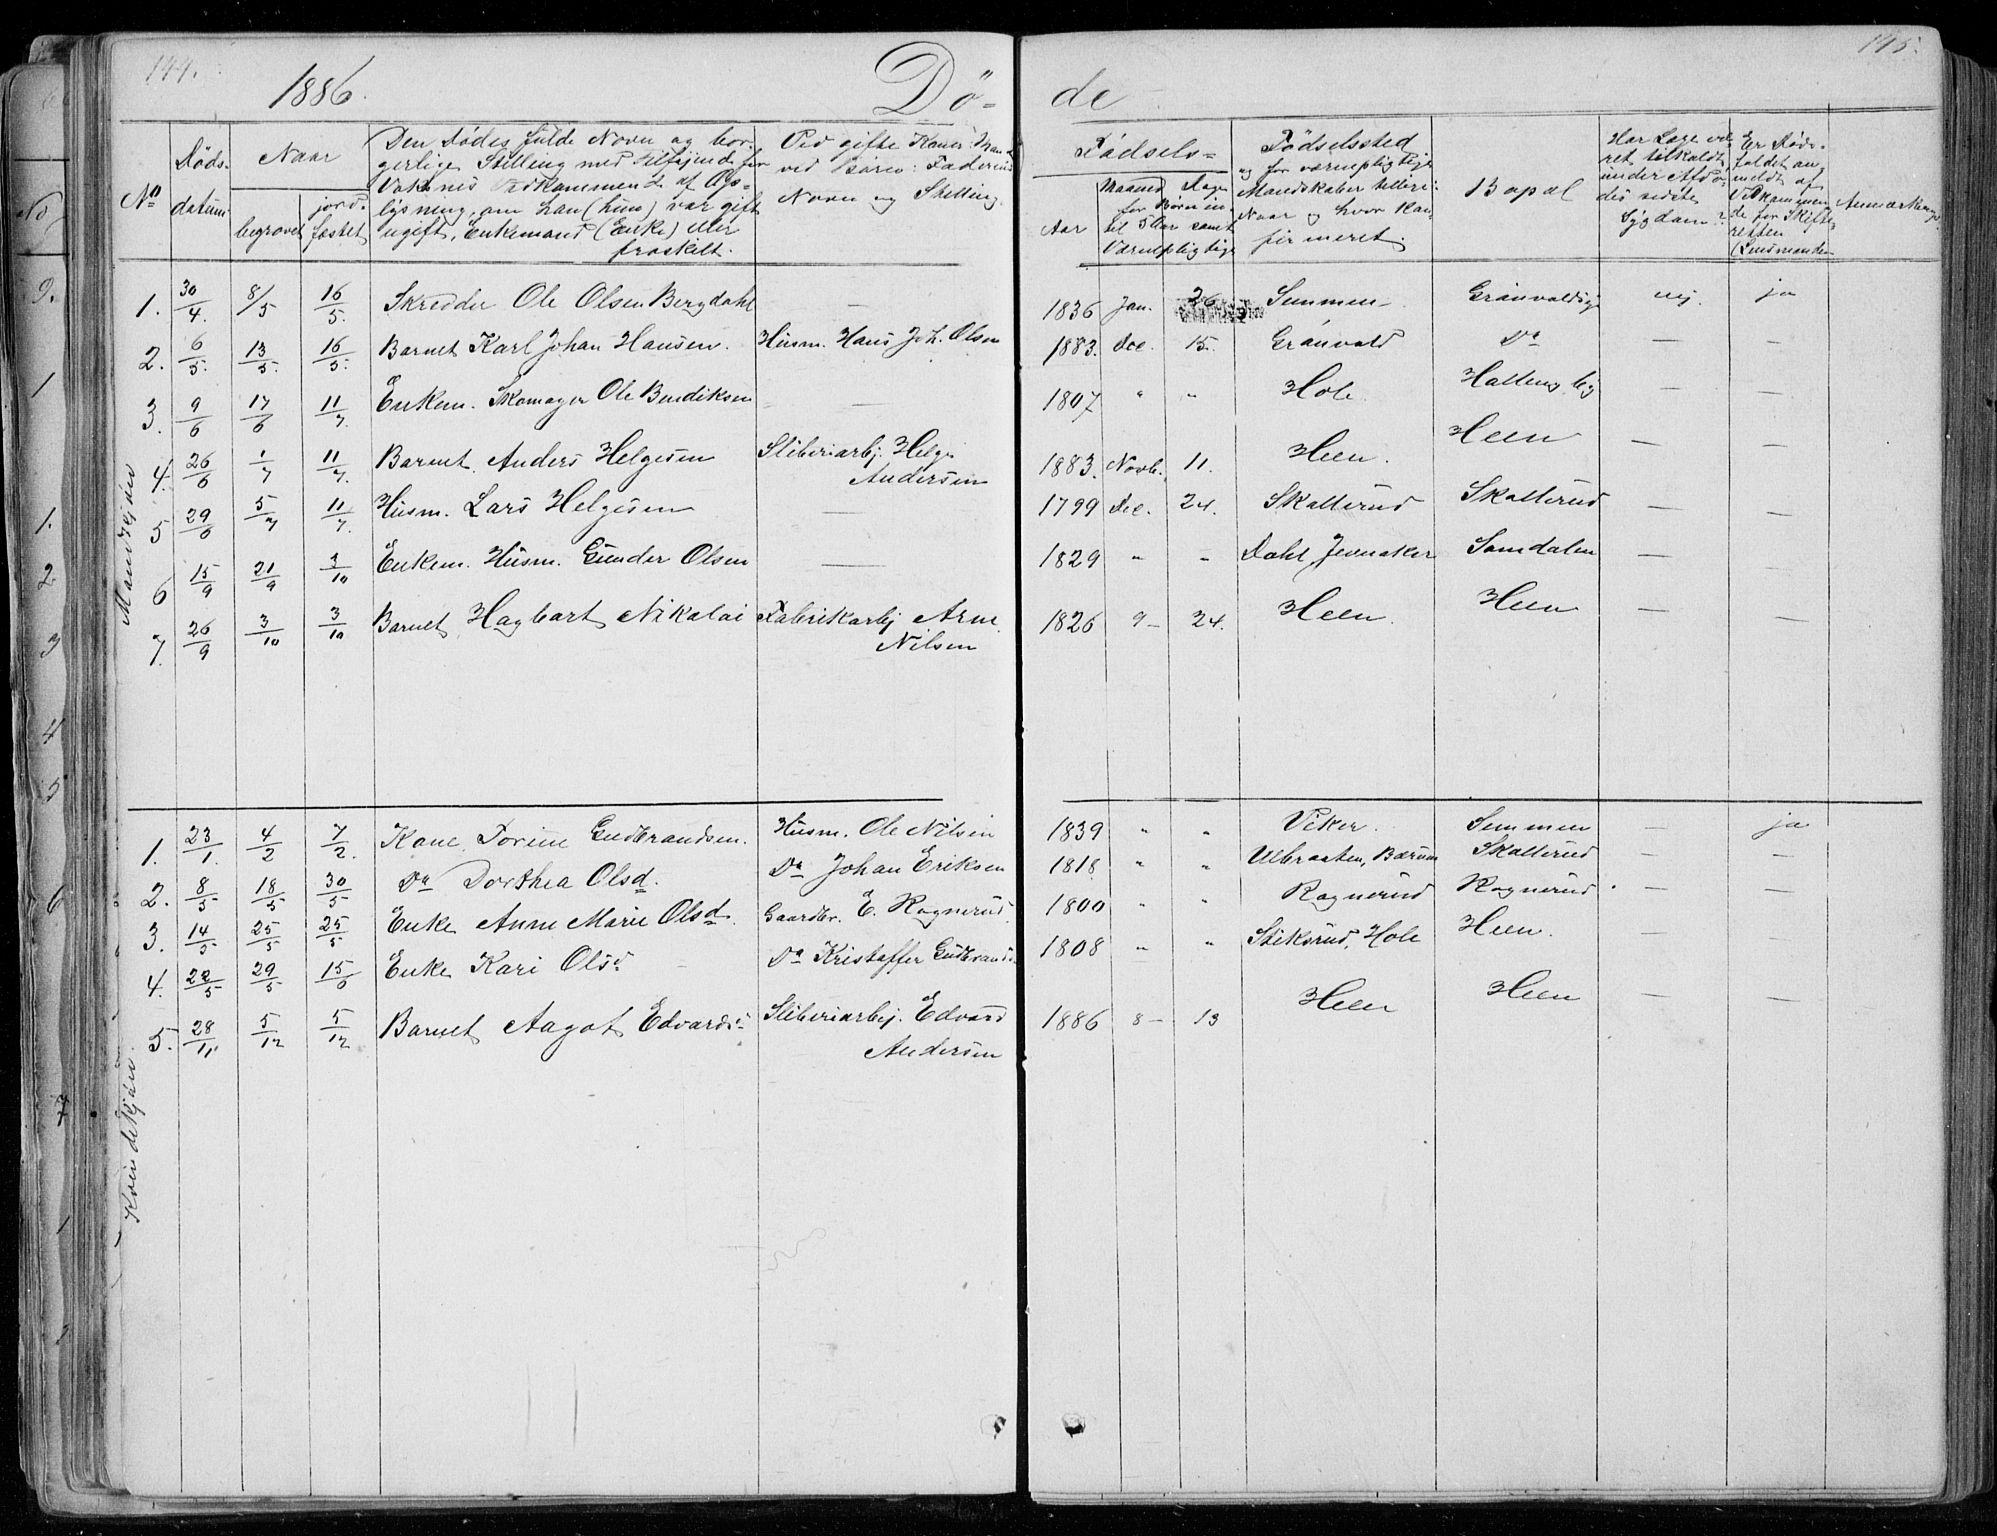 144.
1886.
Dö-
Nº
Döds-
datum
Naar
begravet
jord-
fæstet
Den Dödes fulde Navn og bor-
gerlige Stilling med Tilføjende for
Voksnes Vedkommende af Op-
lysning, om han (hun) var gift
ugift, Enkemand (Enke) eller
fraskilt.
Ved gifte Koner: Mand
ved Børn: Faderens
Navn og Stilling.
Mandkjön
1. 30/4. 8/5 16/5. Skrædder Ole Olsen Bergdahl —
2. 6/5. 13/5. 16/5. Barnet Karl Johan Hansen. Husm. Hans Joh. Olsen
3. 9/6 17/6 11/7. Enkem. Skomager Ole Bendiksen —
4. 26/6 1/7 11/7. Barnet Anders Helgesen Sliberiarbj. Helge
Andersen
5 29/6 5/7 11/7. Husm. Lars Helgesen —
6 15/9 21/9 3/10 Enkem. Husm. Gunder Olsen —
7. 26/9 3/10 3/10 Barnet Hagbart Nikolai Fabrikarbj Arne
Nilsen
Kvindekjön
1. 23/1. 4/2 7/2. Kone Torine Gudbrandsen. Husm. Ole Nilsen
2. 8/5 18/5 30/5 Do Dorthea Olsd. Do Johan Eriksen
3. 14/5 25/5 25/5 Enke Anne Marie Olsd. Gaardbr. E. Rognerud
4. 22/5 29/5 15/6 Enke Kari Olsd — Do Kristoffer Gudbrands.
5. 28/11 5/12 5/12 Barnet Aagot Edvards. Sliberiarbj. Edvard
Andersen
145.
de
Fødsels-
Aar
Maaned Dag
for Børn in-
til 5 Aar samt
Værnepligtige
Fødselssted
og for værnepligtige
Mandskaber tillige:
Naar og hvor Kon-
firmeret.
Bopæl
Har Læge væ-
ret tilkaldt
under Afdø-
des sidste
Sygdom?
Er Døds-
faldet an-
meldt af
Vedkommen-
de for Skifte-
retten
(Lensmanden
Anmærkninger
1836 Jan. 26 Semmen - Grånvoldsg nej. ja
1883. Dec. 15. Grånvold Do — —
1807 " " Hole Halteng. bg — —
1883. Novb. 11. Heen. Heen — —
1799 Dec. 24. Skollerud Skollerud — —
1829 " " Dahl, Jevnaker Somdalen — —
1826 9 — 24. Heen. Heen — —
1839 " " Viker. Semmen — ja
1818 " " Ulbraaten, Bærum Skollerud — —
1800 " " Rognerud Rognerud — —
1808 " " Stiksrud, Hole Heen. — —
1886 8 — 13 Heen Heen — —